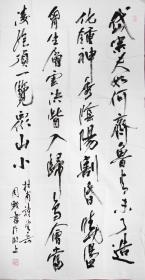 岱宗夫如何齊魯青未了造
化鍾神秀陰陽割昏曉盪
胸生層雲決眥入歸鳥會當
凌絕頂一覽眾山小
杜甫詩望岳